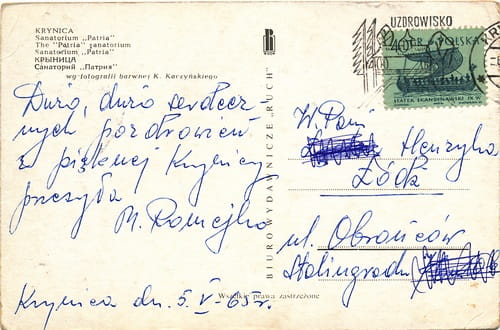 KRYNICA
Sanatorium „Patria”
The "Patria" sanatorium
Sanatorium „Patria”
КРЫНИЦА
Санаторий „Патрия”
wg fotografii barwnej K. Kaczyńskiego
Dużo, dużo serdecz-
nych pozdrowień
z pięknej Krynicy
przesyła
M. Romejko
Krynica dn. 5. V - 65 r.
BIURO WYDAWNICZE „RUCH”
Wszelkie prawa zastrzeżone
UZDROWISKO
POLSKA
STATEK SKANDYNAWSKI IX W.
W Pani
Henryka
Łódź
ul. Obrońców
Stalingradu